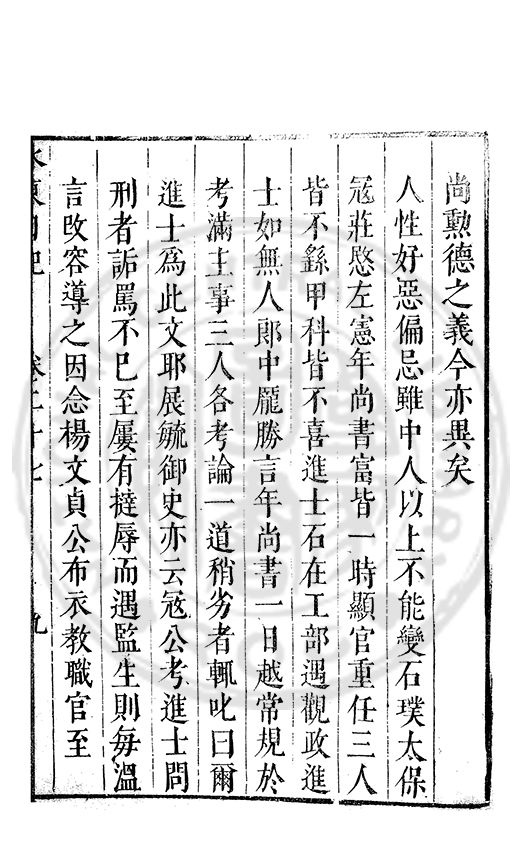 尚勲德之義今亦異矣
人性好惡偏忌雖中人以上不能變石璞太保
冦莊愍左憲年尚書富皆一時顯官重任三人
皆不繇甲科皆不喜進士石在工部遇觀政進
士如無人郎中龎勝言年尚書一日越常規於
考滿主事三人各考論一道稍劣者輒叱曰爾
進士為此文耶展毓御史亦云冦公考進士問
刑者詬罵不已至屢有撻辱而遇監生則每溫
言改容導之因念楊文貞公布衣教職官至
水東日記　卷二十七　九